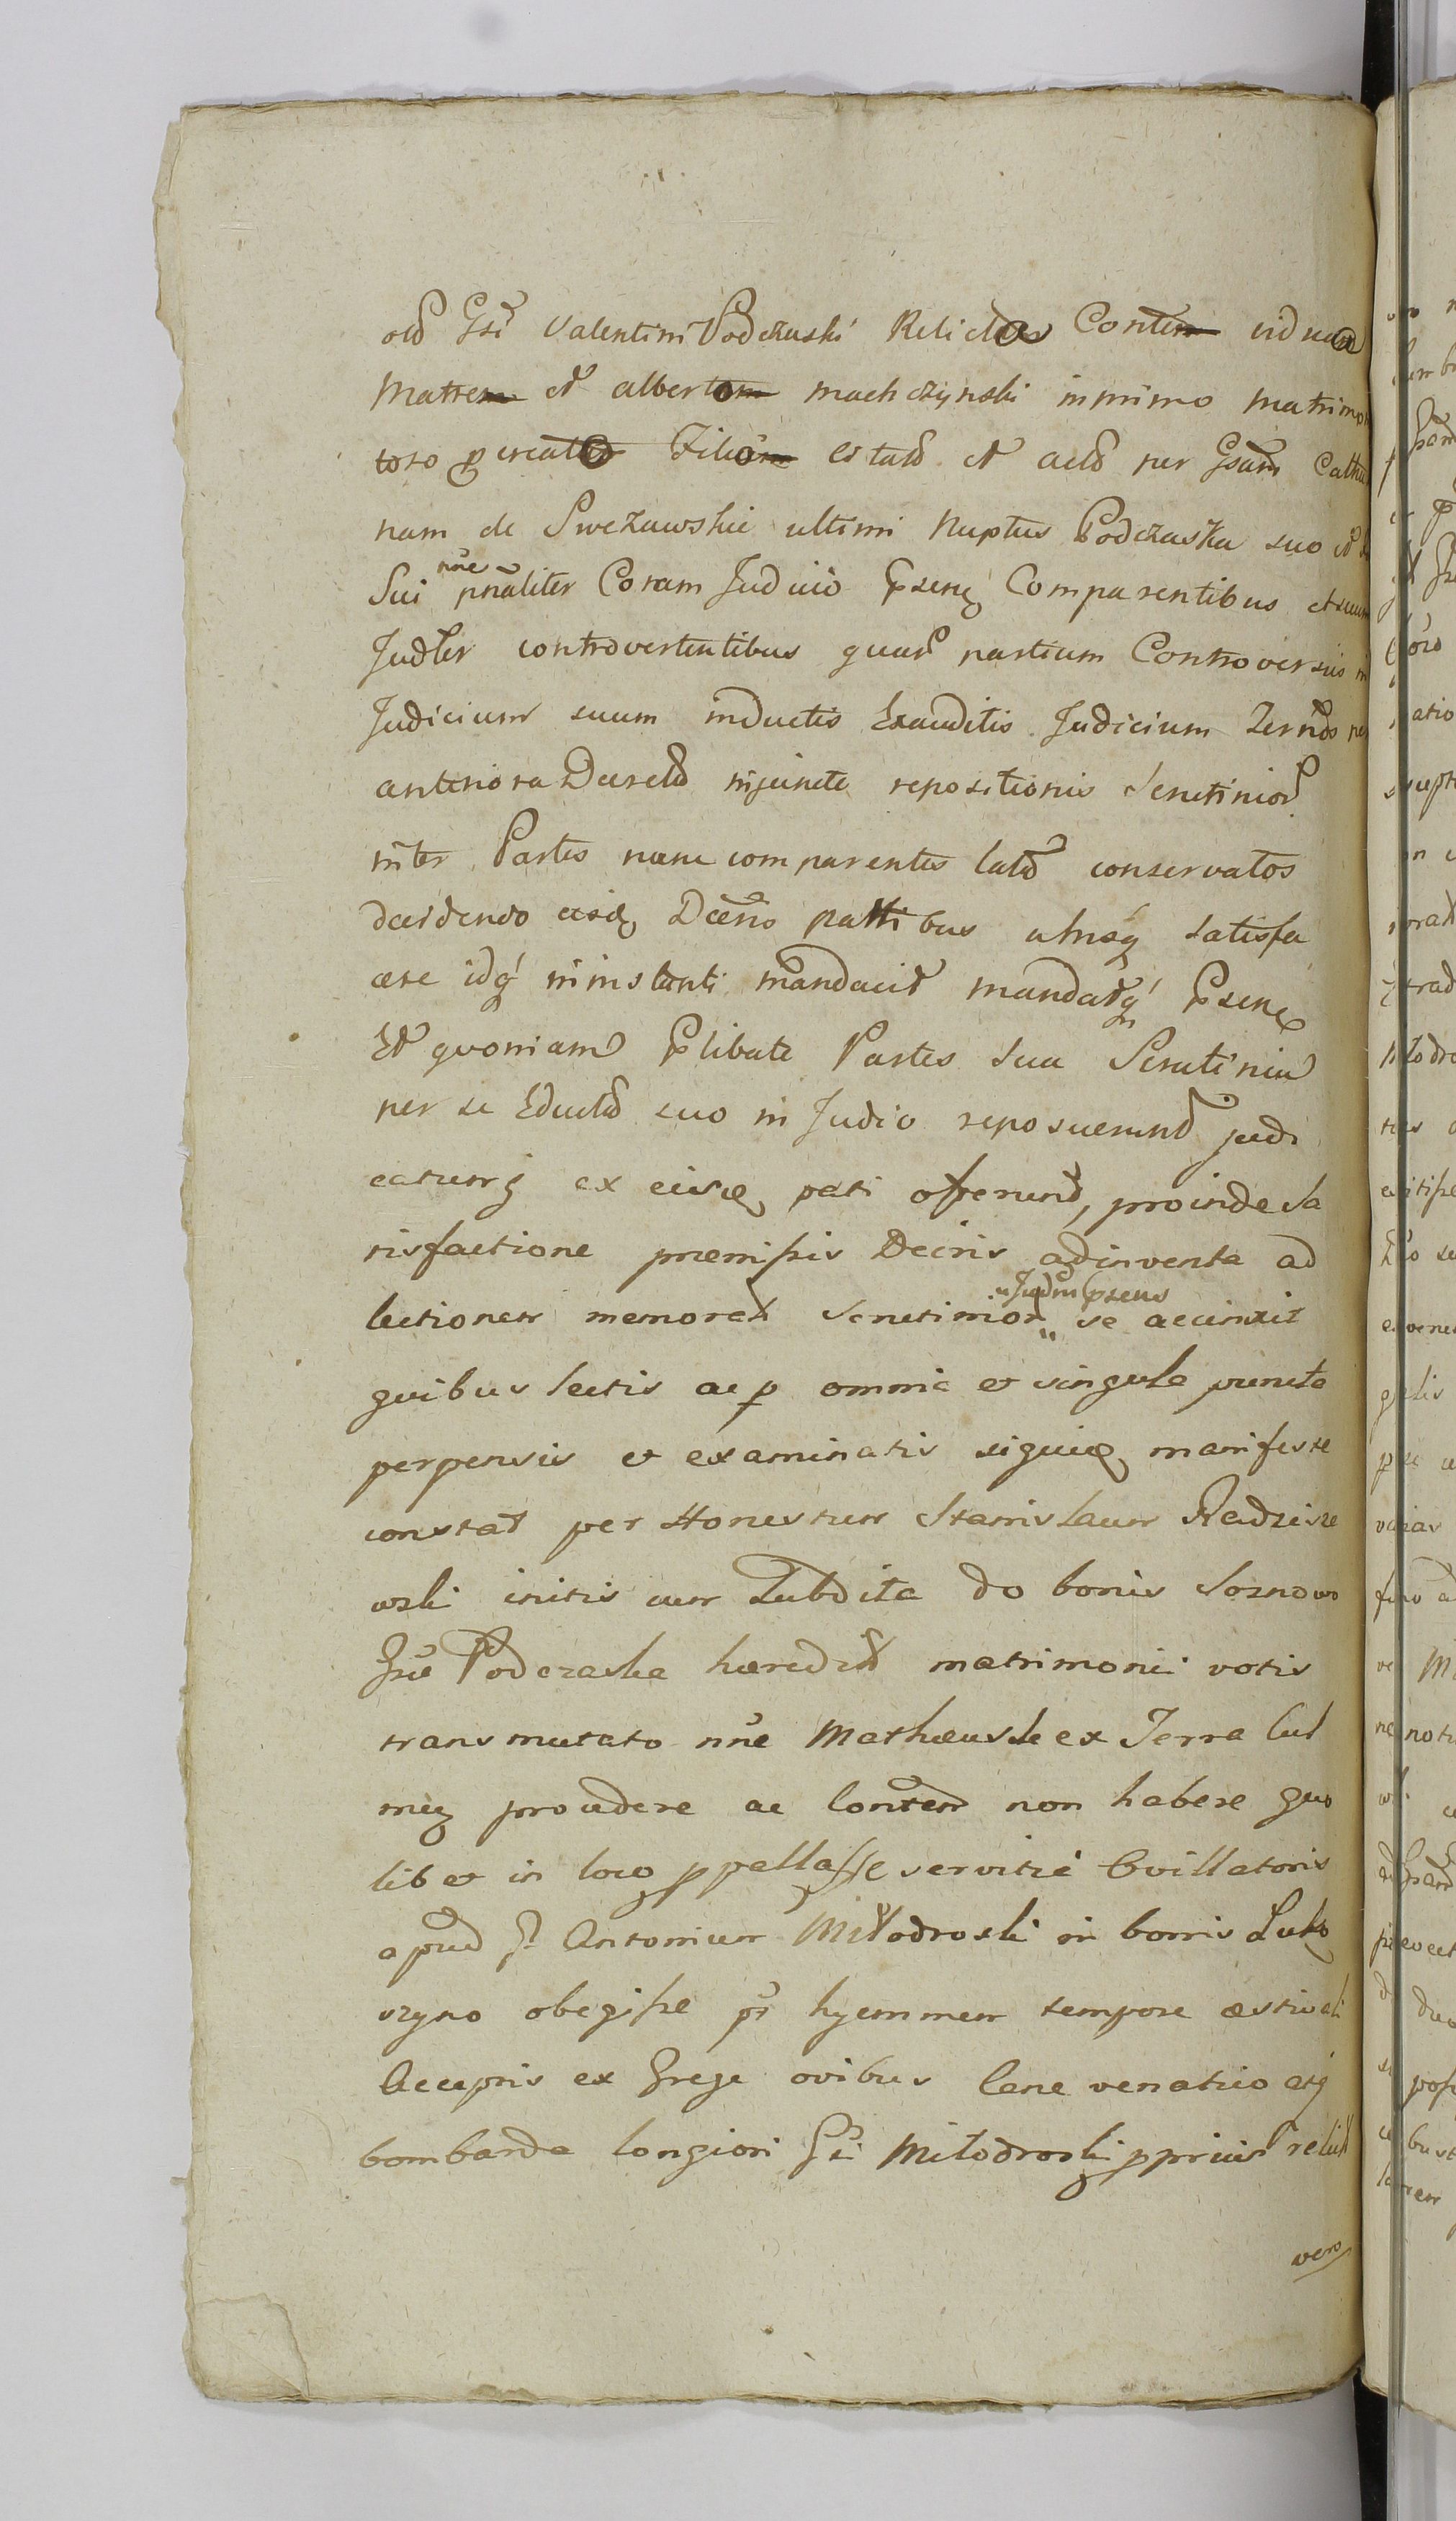 old Gsi Valentini Podczaski Relicta Contem vidua
Matrem et albertum machczynski in primo matrimon
toro pcreato Filium Citat et actd per Gsam Catha
nam de Swezawskie ultimi nuptus Podczaska suo et
Sui nne pnaliter Coram Judicio psenq Comparentibus et suum
Judlter controvertentibus quar partium Controversiis in
Judicium suum inductis Exauditis Judicium Terrnd per
anteriora Decreta injuncte repositionis Scrutinior
inter Partes nunc comparentes latd conservatos
decidendo eisdq Decris partibus utrisq satisfa
cere idq in instanti mandavit mandatq psenq
Et quoniam plibate Partes sua Scrutinia
per se Educta suo in Judio reposuerunt judi
catumq ex eisdq pati offerunt, proinde Sa
tisfactione præmissis Decris adinventa ad
lectionem memorat Scrutinior Judm psens se accinxit
quibus lectis ac p omnia et singula puncta
perpensis et examinatis siquidq manifeste
constat per Honestum Stanislaum Radzisze
wski initis cum Subdita do bonis Sosnowo
Gse Podczaska hæredit matrimonii votis
transmutato nne Mathæus de ex Terra Cul
meq prodere ac Conten non habere quo
libet in loco ppellasse servitii Ovillatoris
apud G. Antonium Miłodroski in bonis Luko
szyno obegisse pr hyemmem tempore æstivali
Acceptis ex Grege ovibus Cane venatico atq
bombarda longiori Gsi Miłodroski pprius relict
vero